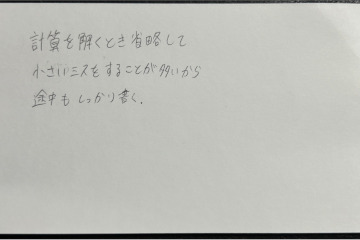 計算を解くとき省略して
小さいミスをすることが多いから
途中もしっかり書く.